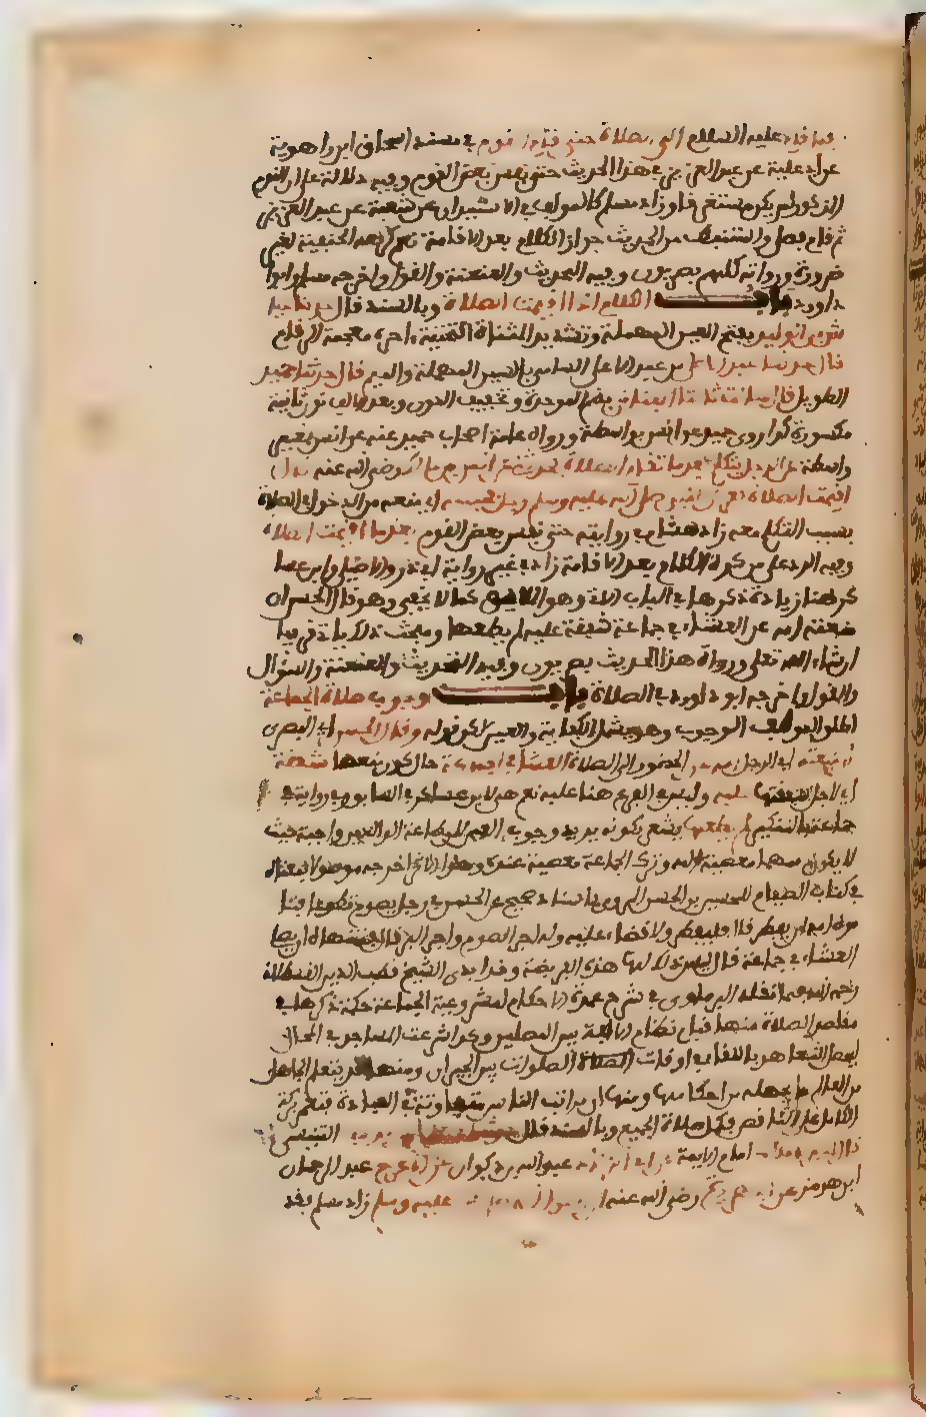 فما قام عليه السلام الى الصلاة حتى نام القوم في مسند اسحاق ابن راهوية
عن ابن علية عن عبد العزيز في هذا الحديث حتى نعس بعض القوم وفيه دلالة على ان النوم
المذكور لم يكن مستغرقا وزاد مسلم كالمولف في الاستئذان عن شعبة عن عبد العزيز
ثم قام فصلى واستنبط من الحديث جواز الكلام بعد الاقامة نعم كرهه الحنفية لغير
ضرورة ورواته كلهم بصريون وفيه التحديث والعنعنة والقول واخرجه مسلم وابوا
داوود باب الكلام اذا اقيمت الصلاة وبالسند قال حدثنا عيا
ش بن الوليد بفتح العين المهملة وتشديد المثناة التحتية اخره معجمة الرقام
قال حدثنا عبد الاعلى بن عبد الاعلى السامي بالسين المهملة والميم قال حدثنا حميد
الطويل قال سالت ثابتا البناني بضم الموحدة وتخفيف النون وبعد الالف نون ثانية
مكسورة كذا روى حميد عن انس بواسطة ورواه عامة اصحاب حميد عنه عن انس بغير
واسطة عن الرجل يتكلم بعد ما تقام الصلاة فحدثني عن انس بن مالك رضي الله عنه قال
اقيمت الصلاة فعرض للنبي صلى الله عليه وسلم رجل فحبسه اي منعه من الدخول في الصلاة
بسبب التكلم معه زاد هشام في روايته حتى نعس بعض القوم بعد ما اقيمت الصلاة
وفيه الرد على من كره الكلام بعد الاقامة زاد في غير رواية ابي ذر والاصيلي وابن عسا
كر هنا زيادة ذكرها في الباب الاتي وهو اللايق كما لا يخفى وهو قال الحسن ان
منعته امه عن العشاء في جماعة شفقة عليه لم يطعها ومبحث ذلك ياتي قريبا
ان شاء الله تعلى ورواة هذا الحديث بصريون وفيه التحديث والعنعنة والسؤال
والقول واخرجه ابو داوود في الصلاة باب وجوب صلاة الجماعة
اطلق المولف الوجوب وهو يشمل الكفاية والعين لكن قوله وقال الحسن اي البصري
ان منعته اي الرجل امه عن الحضور الى الصلاة العشاء في الجماعة حال كون منعها شفقة
اي لاجل شفقتها عليه وليس في الفرع هنا عليه نعم هو لابن عساكر في السابق وفي رواية في
جماعة بالتنكير لم يطعها يشعر بكونه يريد وجوب العين
لا يكون فيهما معصية الله وترك الجماعة معصية عنده وهذا الاثر اخرجه موصولا بمعناه
في كتاب الصيام للحسين بن الحسن المروزي باسناد صحيح عن الحسن في رجل يصوم تطوعا فتا
مره امه ان يفطر قال فليفطر ولا قضاء عليه وله اجر الصوم واجر البر قال فتنهاه ان يصلي
العشاء في جماعة قال ليس ذلك لها هذه فريضة وقد ابدى الشيخ قطب الدين القسطلاني
رحمه الله فيما نقله البرماوي في شرح عمدة الاحكام لمشروعية الجماعة حكمة ذكرها في
مقاصد الصلاة منها قيام نظام الالفة بين المصلين ولذا شرعت المساجد في المحال
ليحصل التعاهد باللقاء في اوقات الصلوات بين الجيران ومنها قد يتعلم الجاهل
من العالم ما يجهله من احكامها ومنها ان مراتب الناس متفاوتة في العبادة فتعم بركة
الكامل على الناقص فتكمل صلاة الجميع وبالسند قال حدثنا عبد الله بن يوسف التنيسي
قال اخبرنا مالك امام الايمة عن ابي الزناد عبد الله بن ذكوان عن الاعرج عبد الرحمان
ابن هرمز عن ابي هريرة رضي الله عنه ان رسول الله صلى الله عليه وسلم زاد مسلم فقد